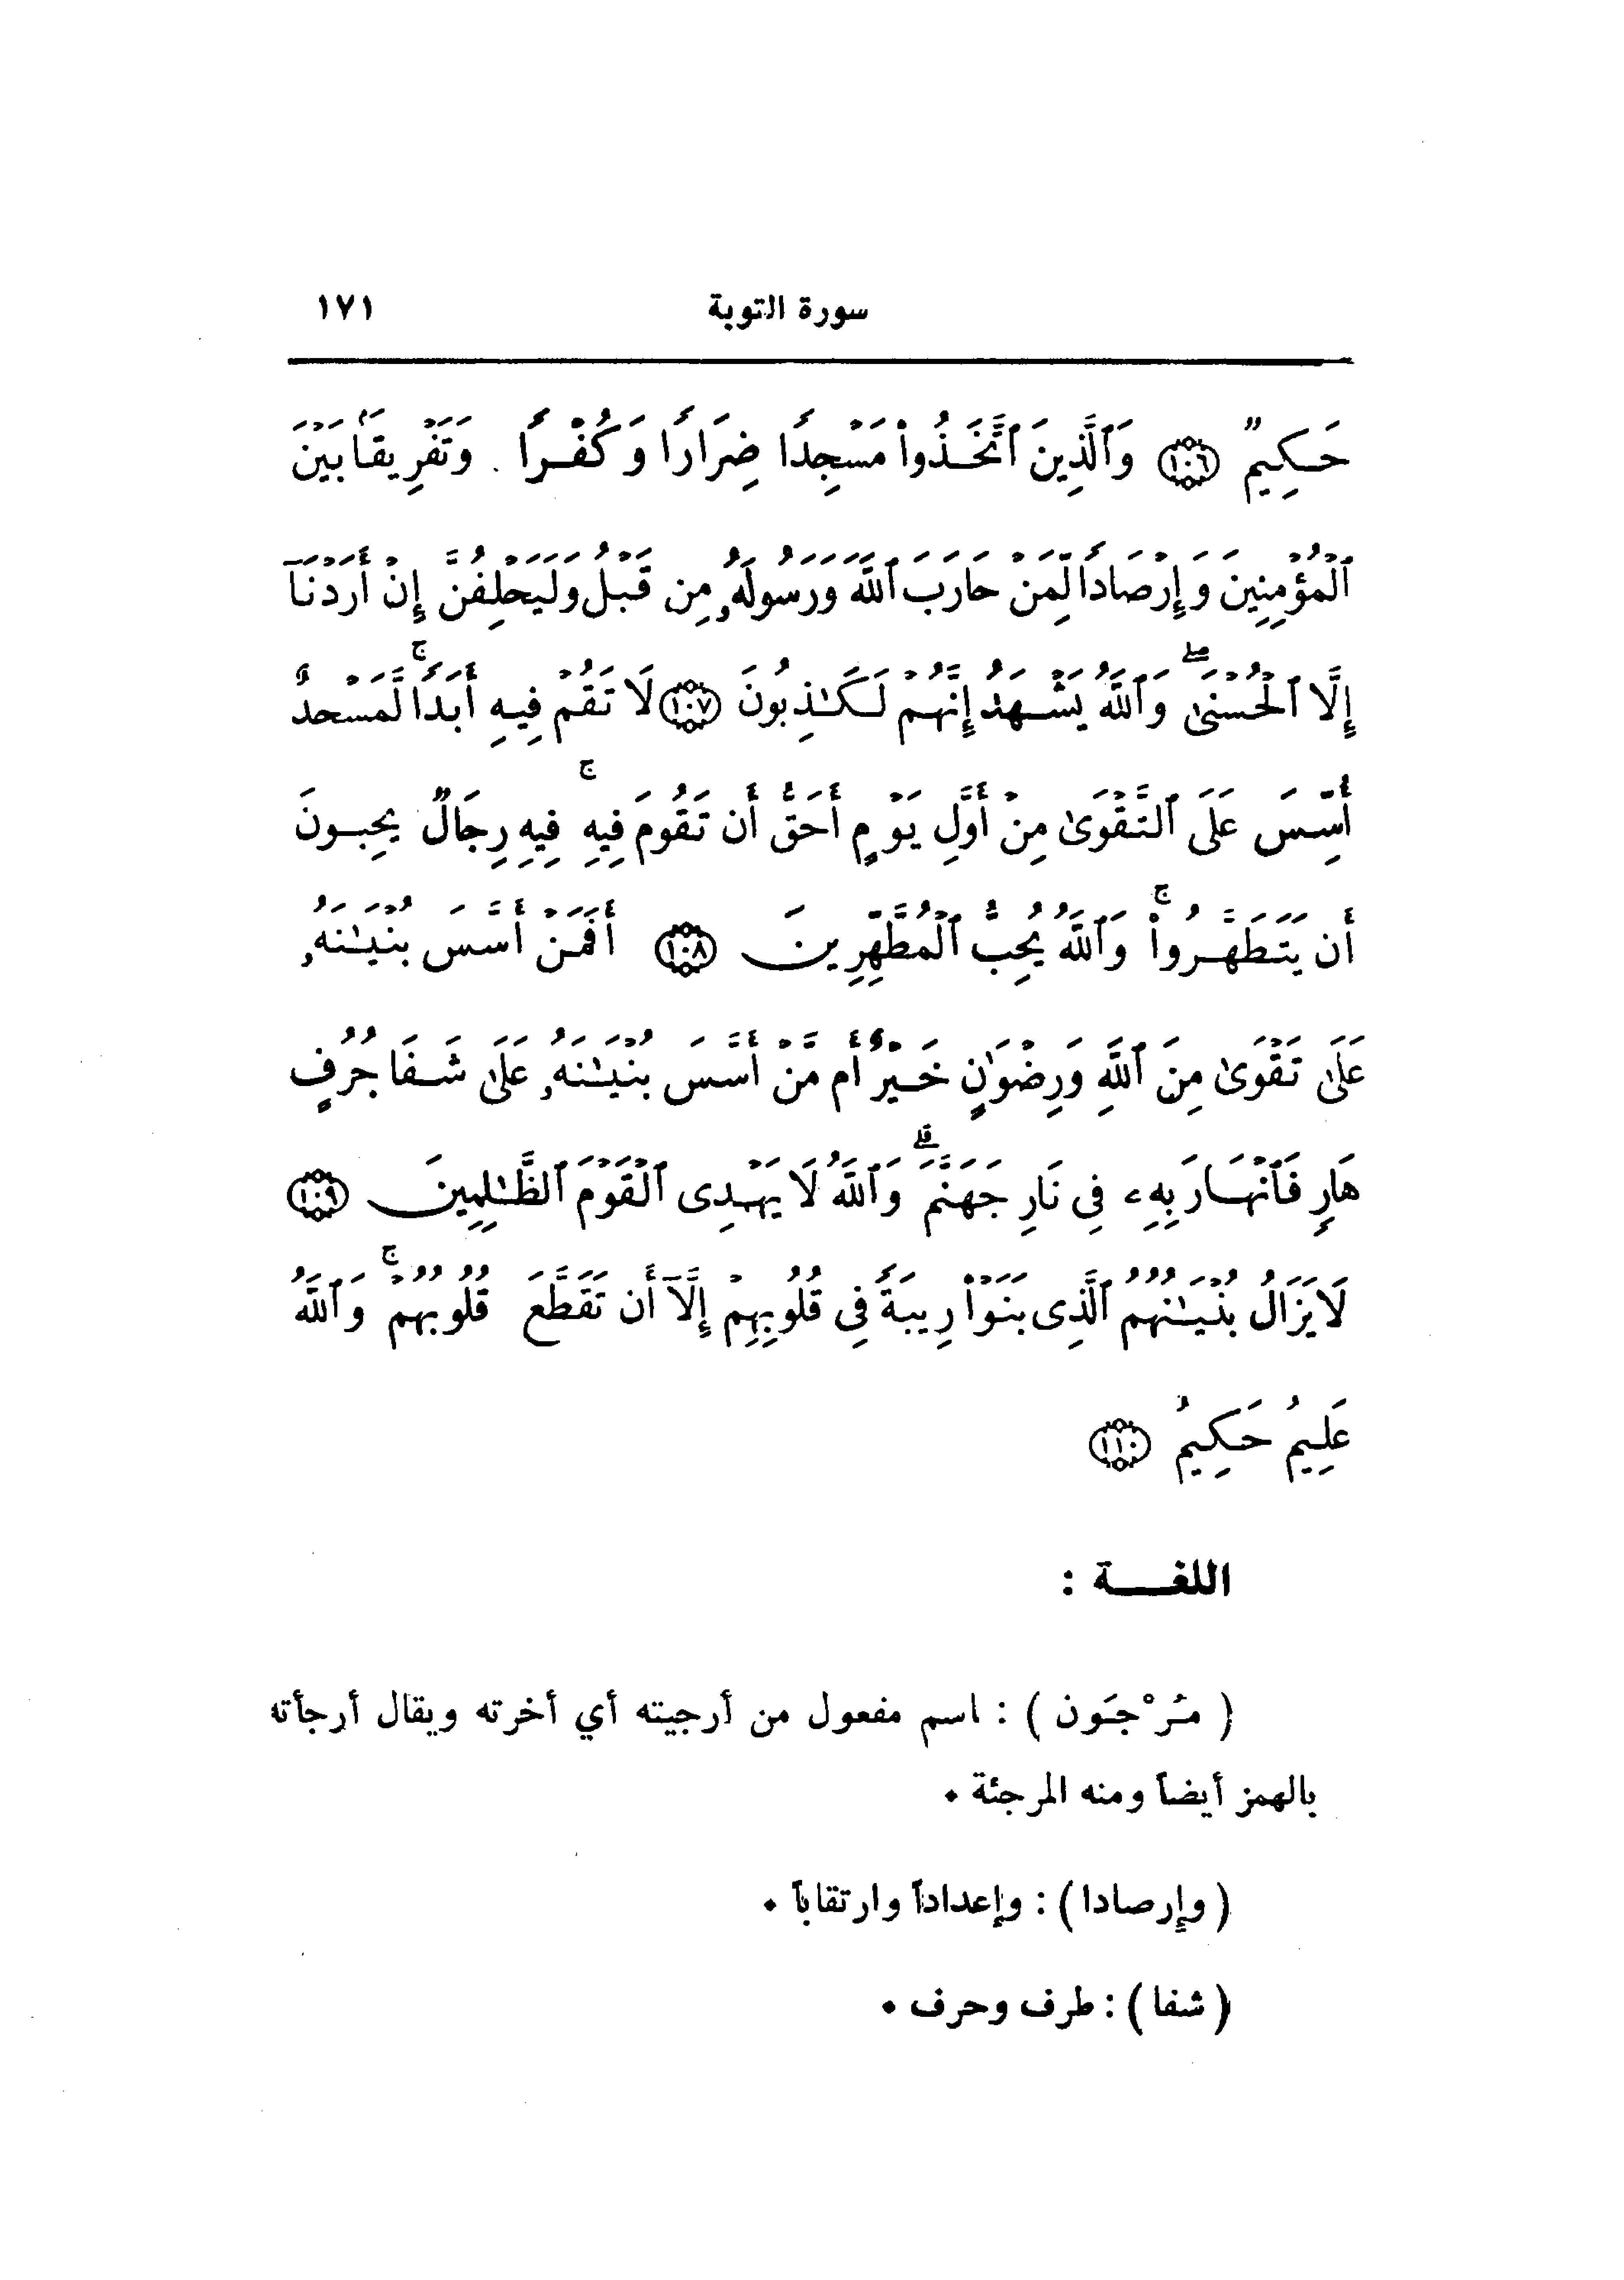 سورة التوبة ١٧١
حَكِيمٌ ﴿١٠٦﴾ وَٱلَّذِينَ ٱتَّخَذُوا۟ مَسْجِدًا ضِرَارًا وَكُفْرًا وَتَفْرِيقًا بَيْنَ
ٱلْمُؤْمِنِينَ وَإِرْصَادًا لِّمَنْ حَارَبَ ٱللَّهَ وَرَسُولَهُۥ مِن قَبْلُ وَلَيَحْلِفُنَّ إِنْ أَرَدْنَآ
إِلَّا ٱلْحُسْنَىٰ ۖ وَٱللَّهُ يَشْهَدُ إِنَّهُمْ لَكَـٰذِبُونَ ﴿١٠٧﴾ لَا تَقُمْ فِيهِ أَبَدًا ۚ لَّمَسْجِدٌ
أُسِّسَ عَلَى ٱلتَّقْوَىٰ مِنْ أَوَّلِ يَوْمٍ أَحَقُّ أَن تَقُومَ فِيهِ ۚ فِيهِ رِجَالٌ يُحِبُّونَ
أَن يَتَطَهَّرُوا۟ ۚ وَٱللَّهُ يُحِبُّ ٱلْمُطَّهِّرِينَ ﴿١٠٨﴾ أَفَمَنْ أَسَّسَ بُنْيَـٰنَهُۥ
عَلَىٰ تَقْوَىٰ مِنَ ٱللَّهِ وَرِضْوَٰنٍ خَيْرٌ أَم مَّنْ أَسَّسَ بُنْيَـٰنَهُۥ عَلَىٰ شَفَا جُرُفٍ
هَارٍ فَٱنْهَارَ بِهِۦ فِى نَارِ جَهَنَّمَ ۗ وَٱللَّهُ لَا يَهْدِى ٱلْقَوْمَ ٱلظَّـٰلِمِينَ ﴿١٠٩﴾
لَا يَزَالُ بُنْيَـٰنُهُمُ ٱلَّذِى بَنَوْا۟ رِيبَةً فِى قُلُوبِهِمْ إِلَّآ أَن تَقَطَّعَ قُلُوبُهُمْ ۚ وَٱللَّهُ
عَلِيمٌ حَكِيمٌ ﴿١١٠﴾
اللغة :
( مُرْجَون ) : اسم مفعول من أرجيته أي أخرته ويقال أرجأته
بالهمز أيضاً ومنه المرجئة •
( وإرصادا ) : وإعداداً وارتقاباً •
( شفا ) : طرف وحرف •